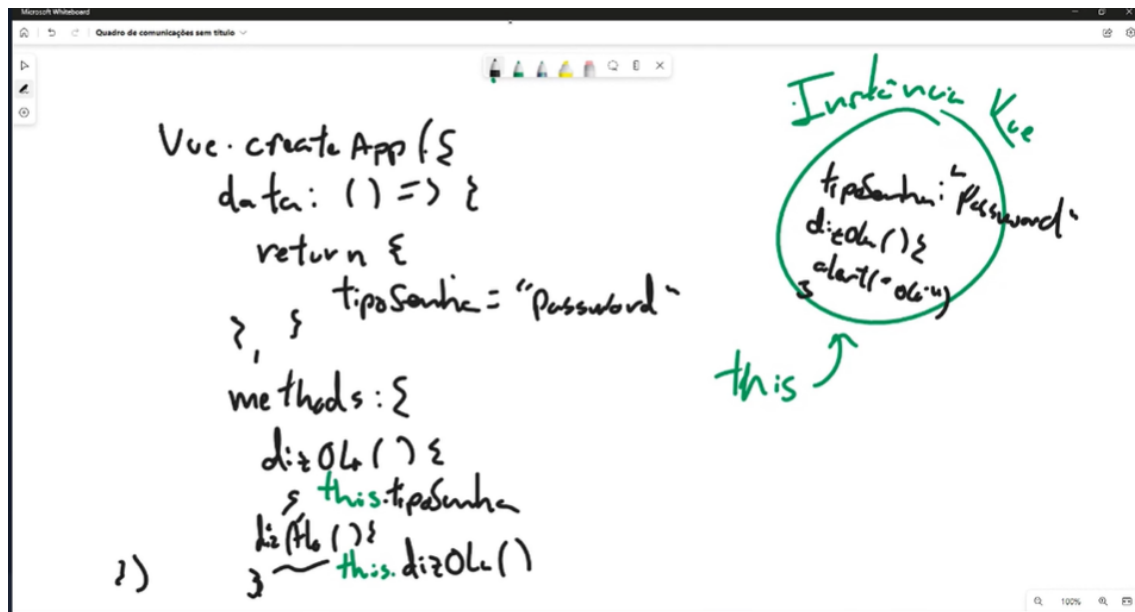 Microsoft Whiteboard
Quadro de comunicações sem título
Vue.createApp({
data: () => {
return {
tipoSenha = "Password"
}, }
methods: {
dizOla() {
} this.tipoSenha
() {
} this.dizOla()
})
Instância Vue
tipoSenha: "Password"
dizOla() {
alert("Ola")
}
this
100%